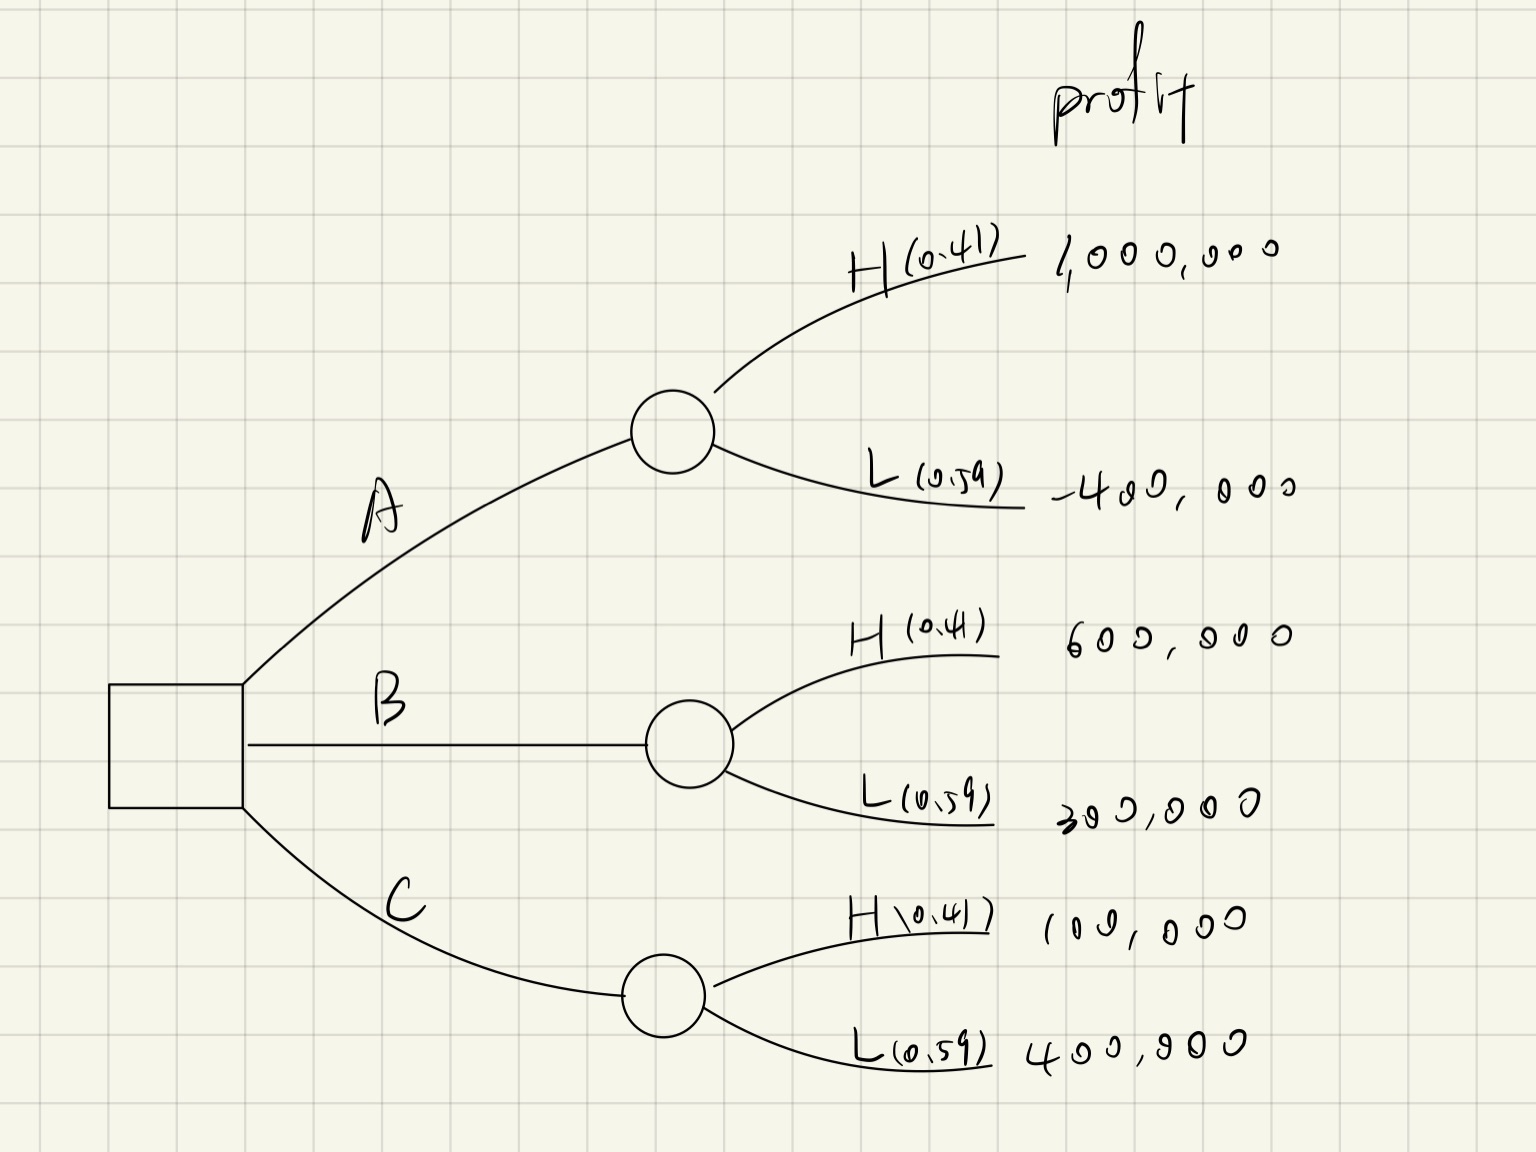 profit
H (0.41) 1,000,000
L (0.59) -400,000
A
H (0.41) 600,000
B
L (0.59) 300,000
C
H (0.41) 100,000
L (0.59) 400,000